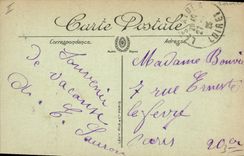 Carte Postale
Correspondance
Adresse
Souvenir
de vacances
Madame Bouvier
7 rue Ernest
Lefèvre
Paris
20e